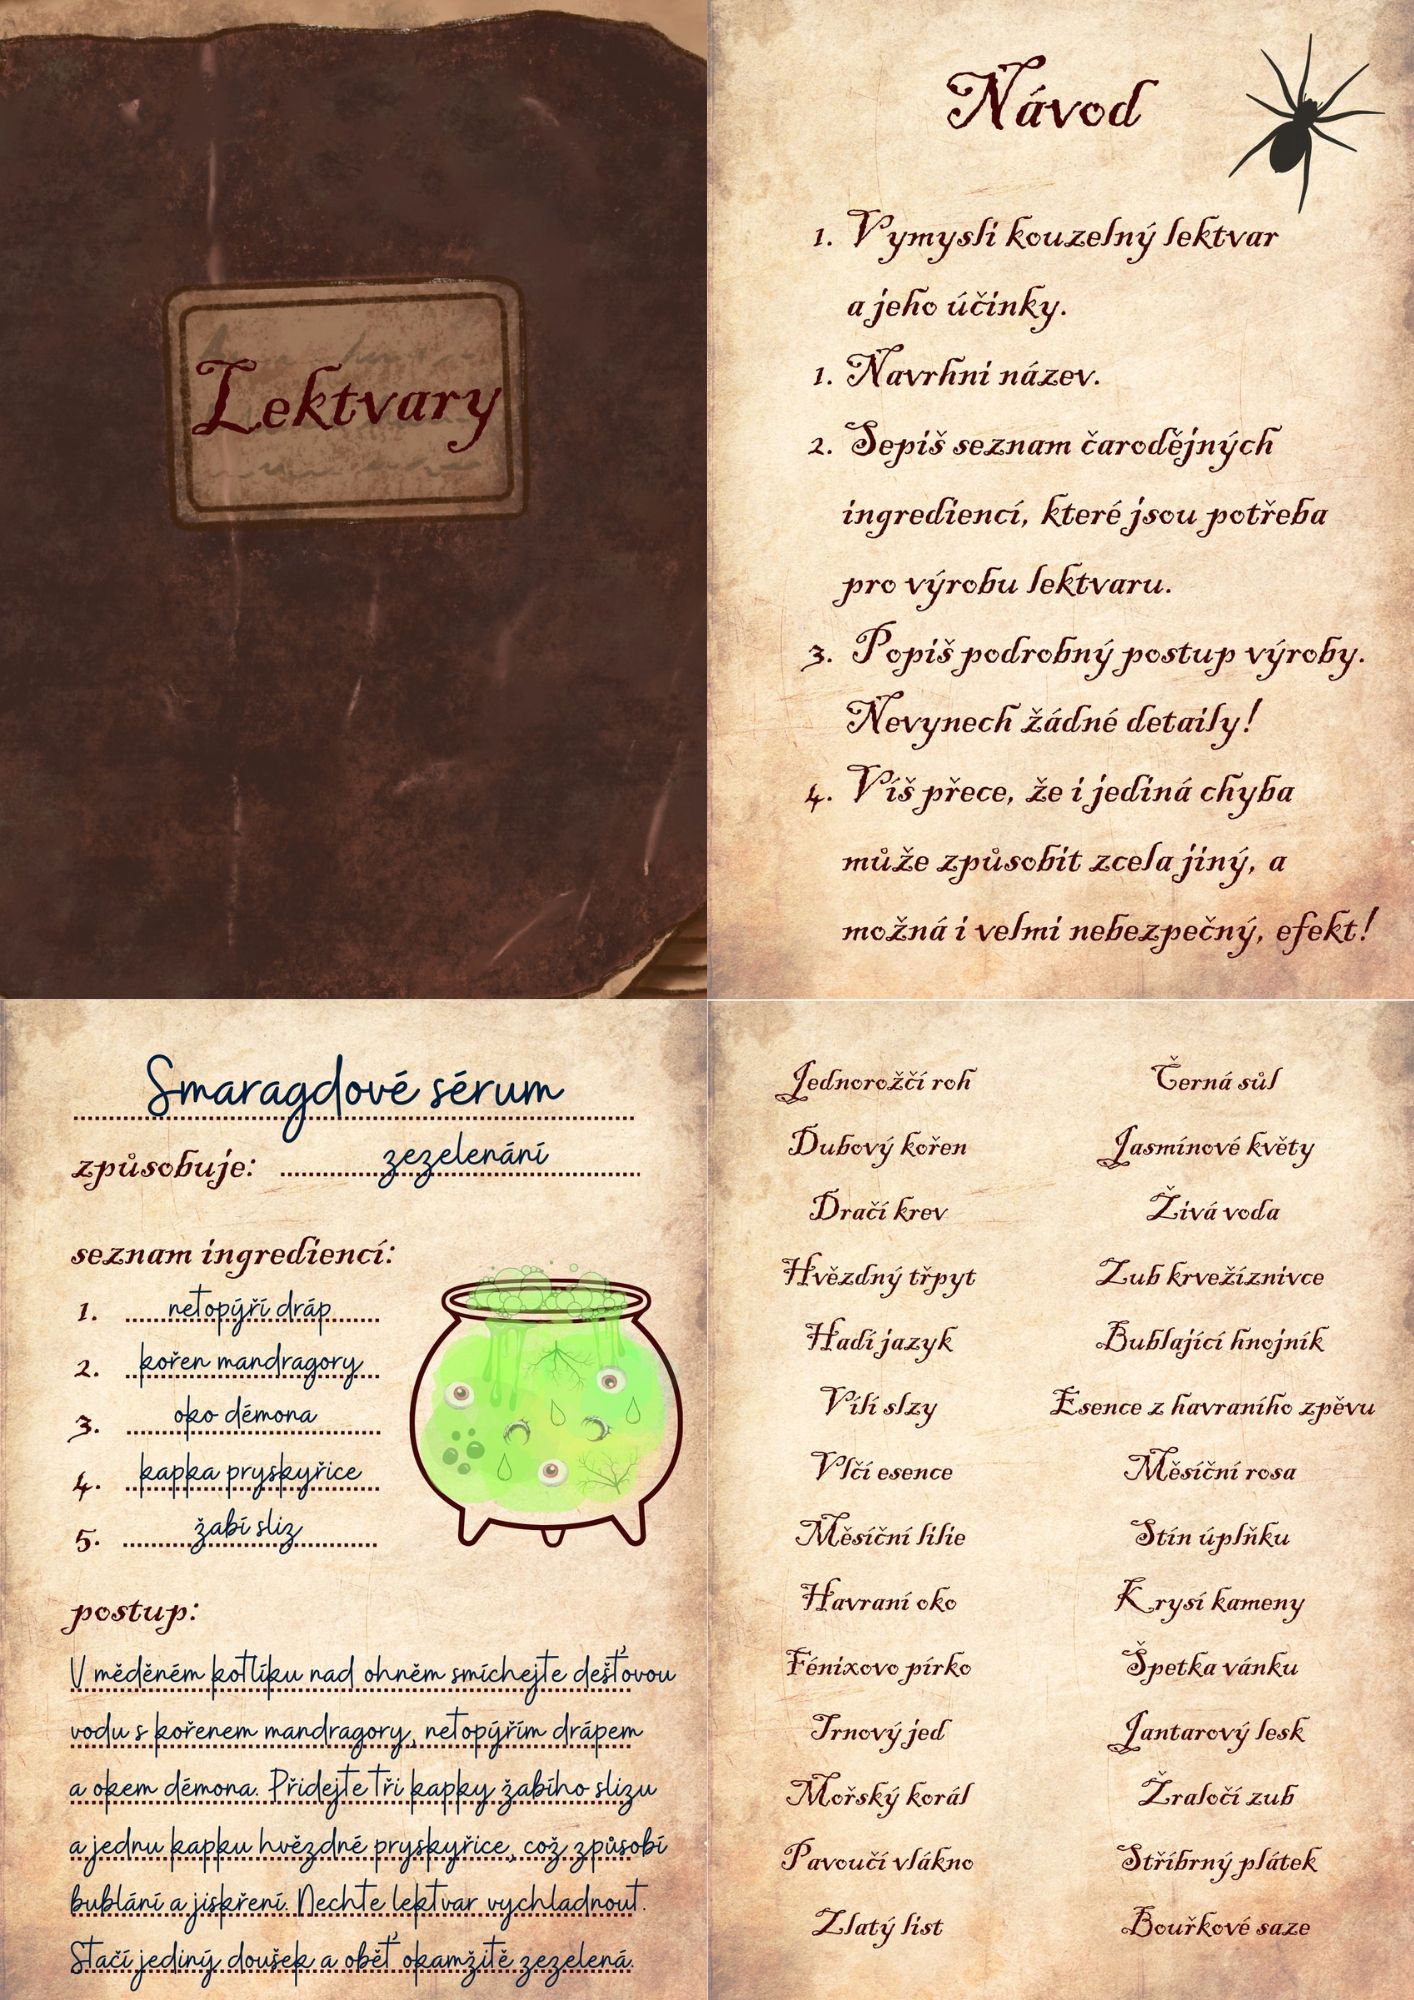 Lektvary
Návod
1. Vymysli kouzelný lektvar
a jeho účinky.
1. Navrhni název.
2. Sepiš seznam čarodějných
ingrediencí, které jsou potřeba
pro výrobu lektvaru.
3. Popiš podrobný postup výroby.
Nevynech žádné detaily!
4. Víš přece, že i jediná chyba
může způsobit zcela jiný, a
možná i velmi nebezpečný, efekt!
Smaragdové sérum
způsobuje: zezelenání
seznam ingrediencí:
1. netopýří dráp
2. kořen mandragory
3. oko démona
4. kapka pryskyřice
5. žabí sliz
postup:
V měděném kotlíku nad ohněm smíchejte dešťovou
vodu s kořenem mandragory, netopýřím drápem
a okem démona. Přidejte tři kapky žabího slizu
a jednu kapku hvězdné pryskyřice, což způsobí
bublání a jiskření. Nechte lektvar vychladnout.
Stačí jediný doušek a oběť okamžitě zezelená.
Jednorožčí roh
Dubový kořen
Dračí krev
Hvězdný třpyt
Hadí jazyk
Vílí slzy
Vlčí esence
Měsíční lilie
Havraní oko
Fénixovo pírko
Trnový jed
Mořský korál
Pavoučí vlákno
Zlatý list
Černá sůl
Jasmínové květy
Živá voda
Zub krvežíznivce
Bublající hnojník
Esence z havraního zpěvu
Měsíční rosa
Stín úplňku
Krysí kameny
Špetka vánku
Jantarový lesk
Žraločí zub
Stříbrný plátek
Bouřkové saze